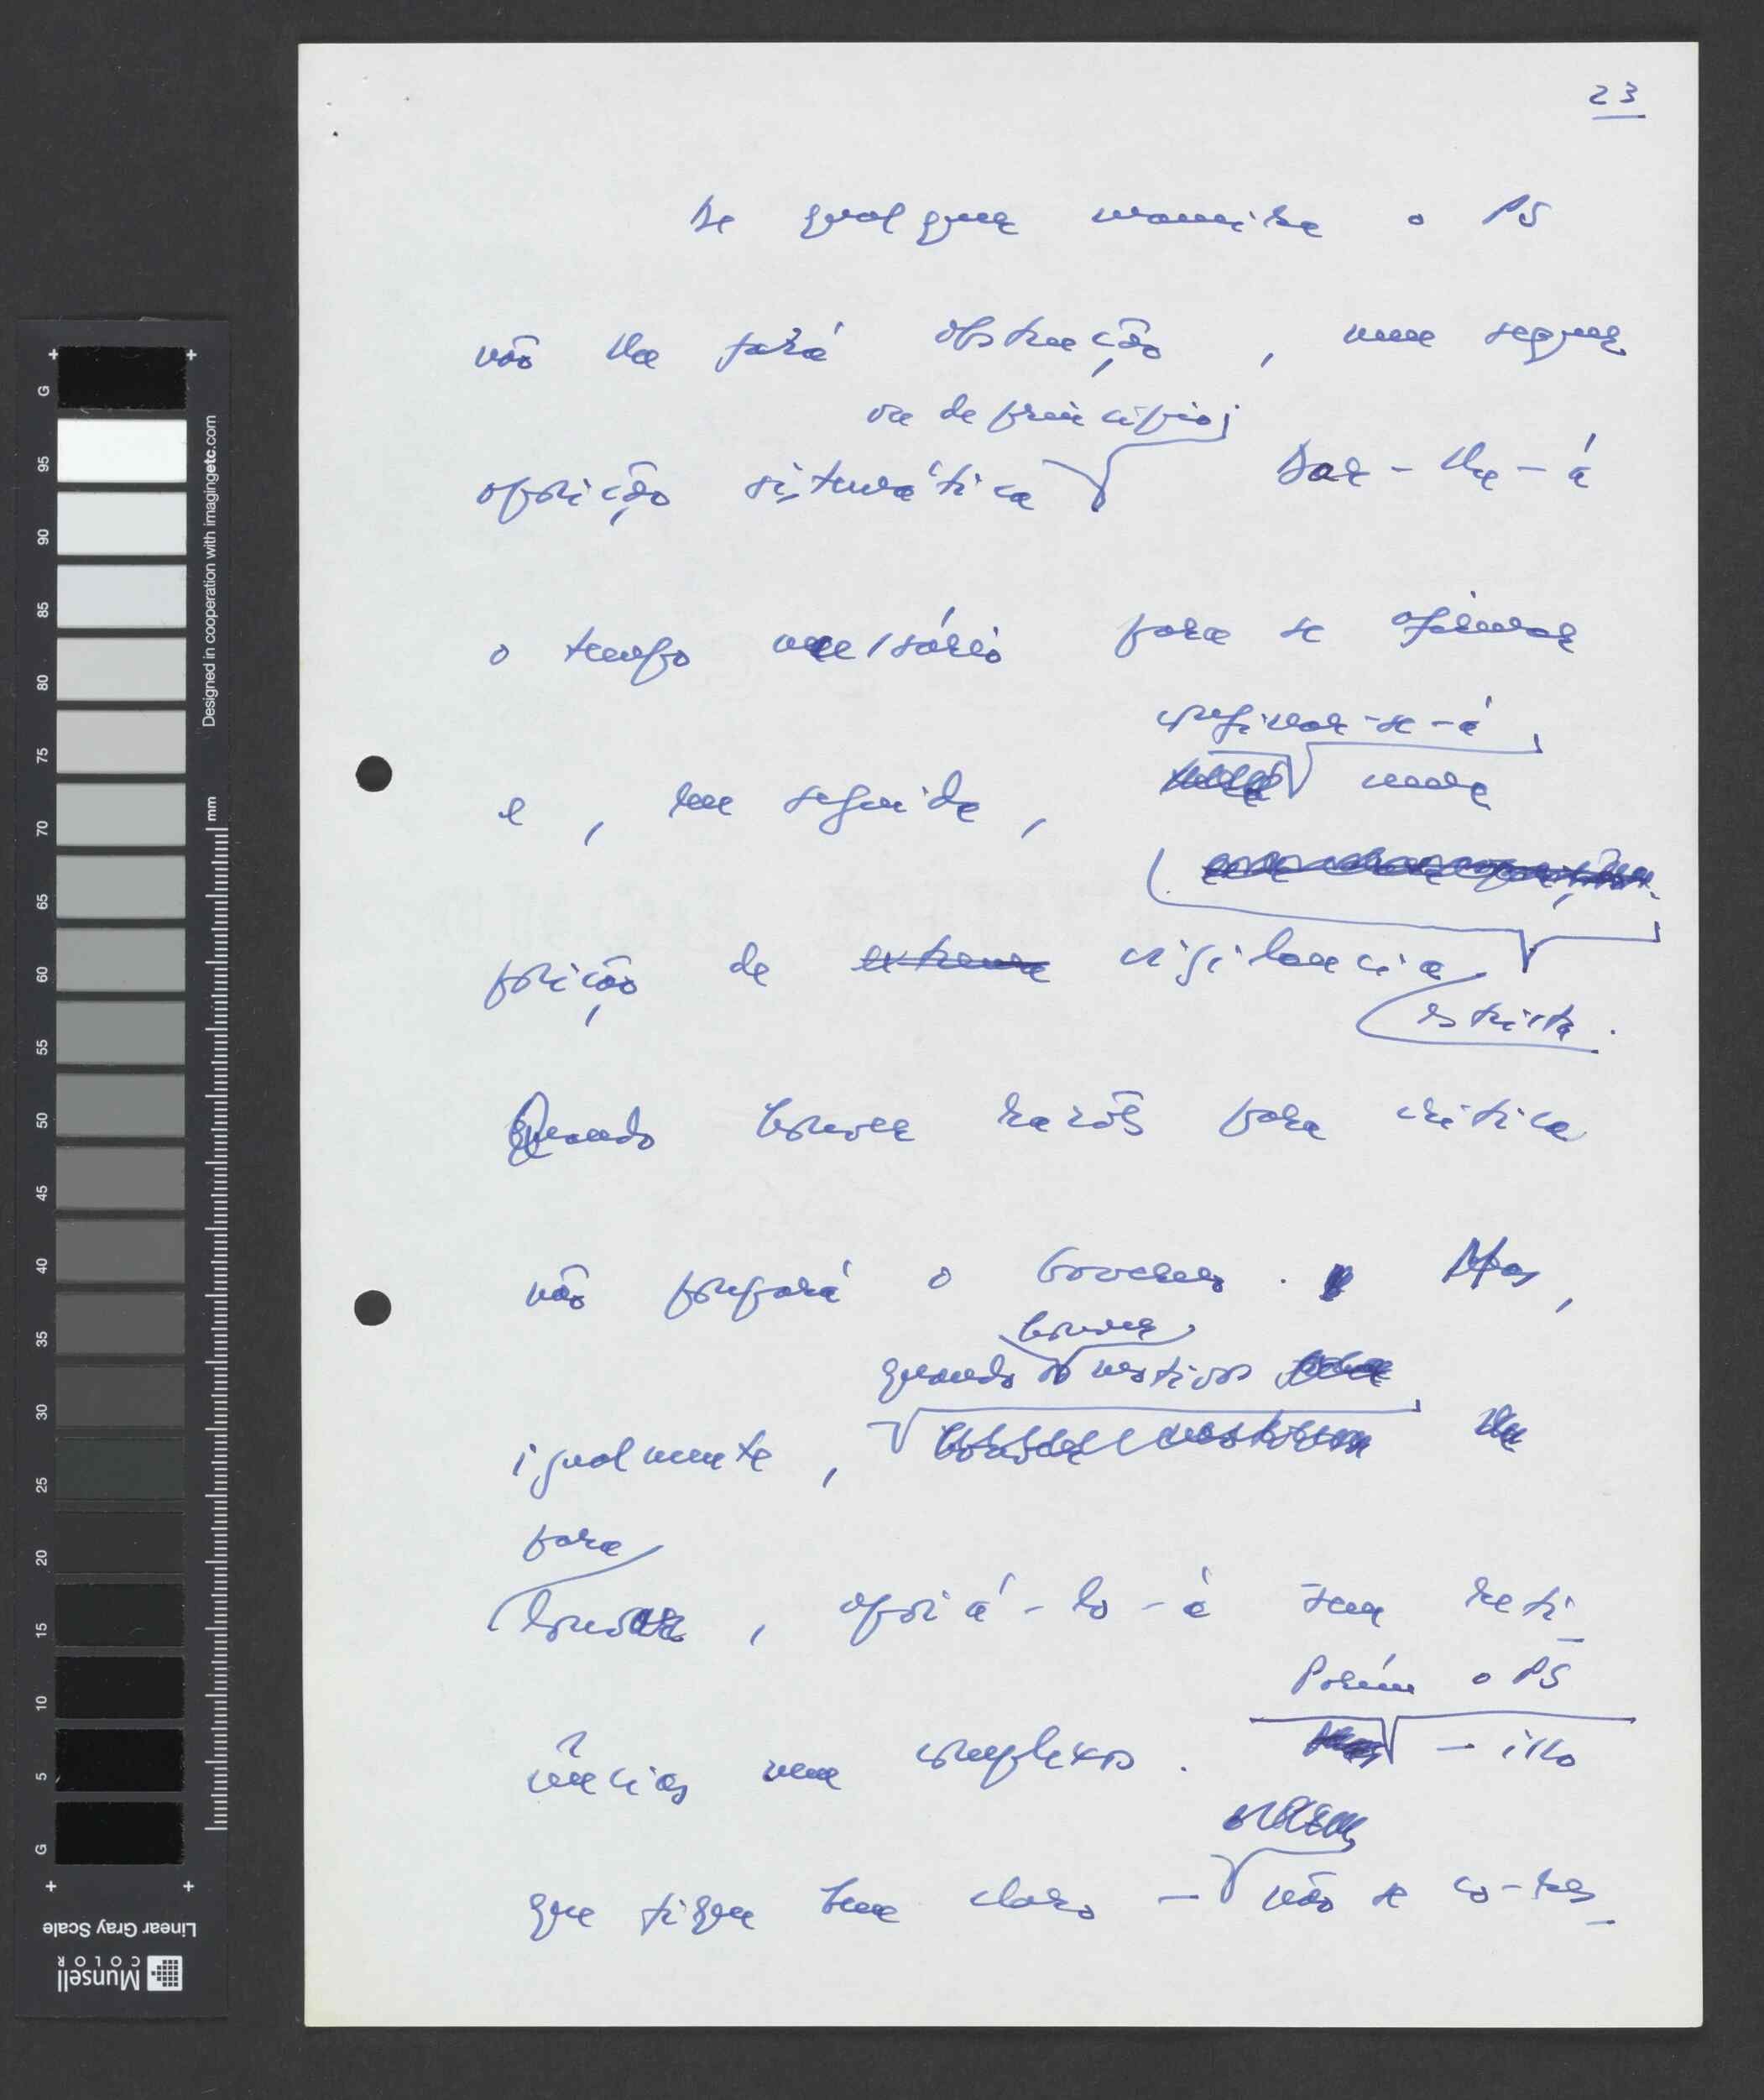 23
De qualquer maneira o PS
não lhe fará obstrução, nem sequer
ou de princípio;
oposição sistemática Dar-lhe-á
o tempo necessário para se afirmar
confinar-se-á
e, em seguida, numa
posição de extrema vigilancia
estricta.
Quando houver razões para critica
não poupará o Governo. Mas,
houver
quando os motivos
igualmente, lhe
para
louvar, apoiá-lo-á sem reti-
Porém o PS
cências nem complexos. - isso
que fique bem claro - não se co-res-
Designed in cooperation with imagingetc.com
mm
G
95
90
85
80
75
70
65
60
55
50
45
40
35
30
25
20
15
10
5
G
Linear Gray Scale
Munsell
COLOR